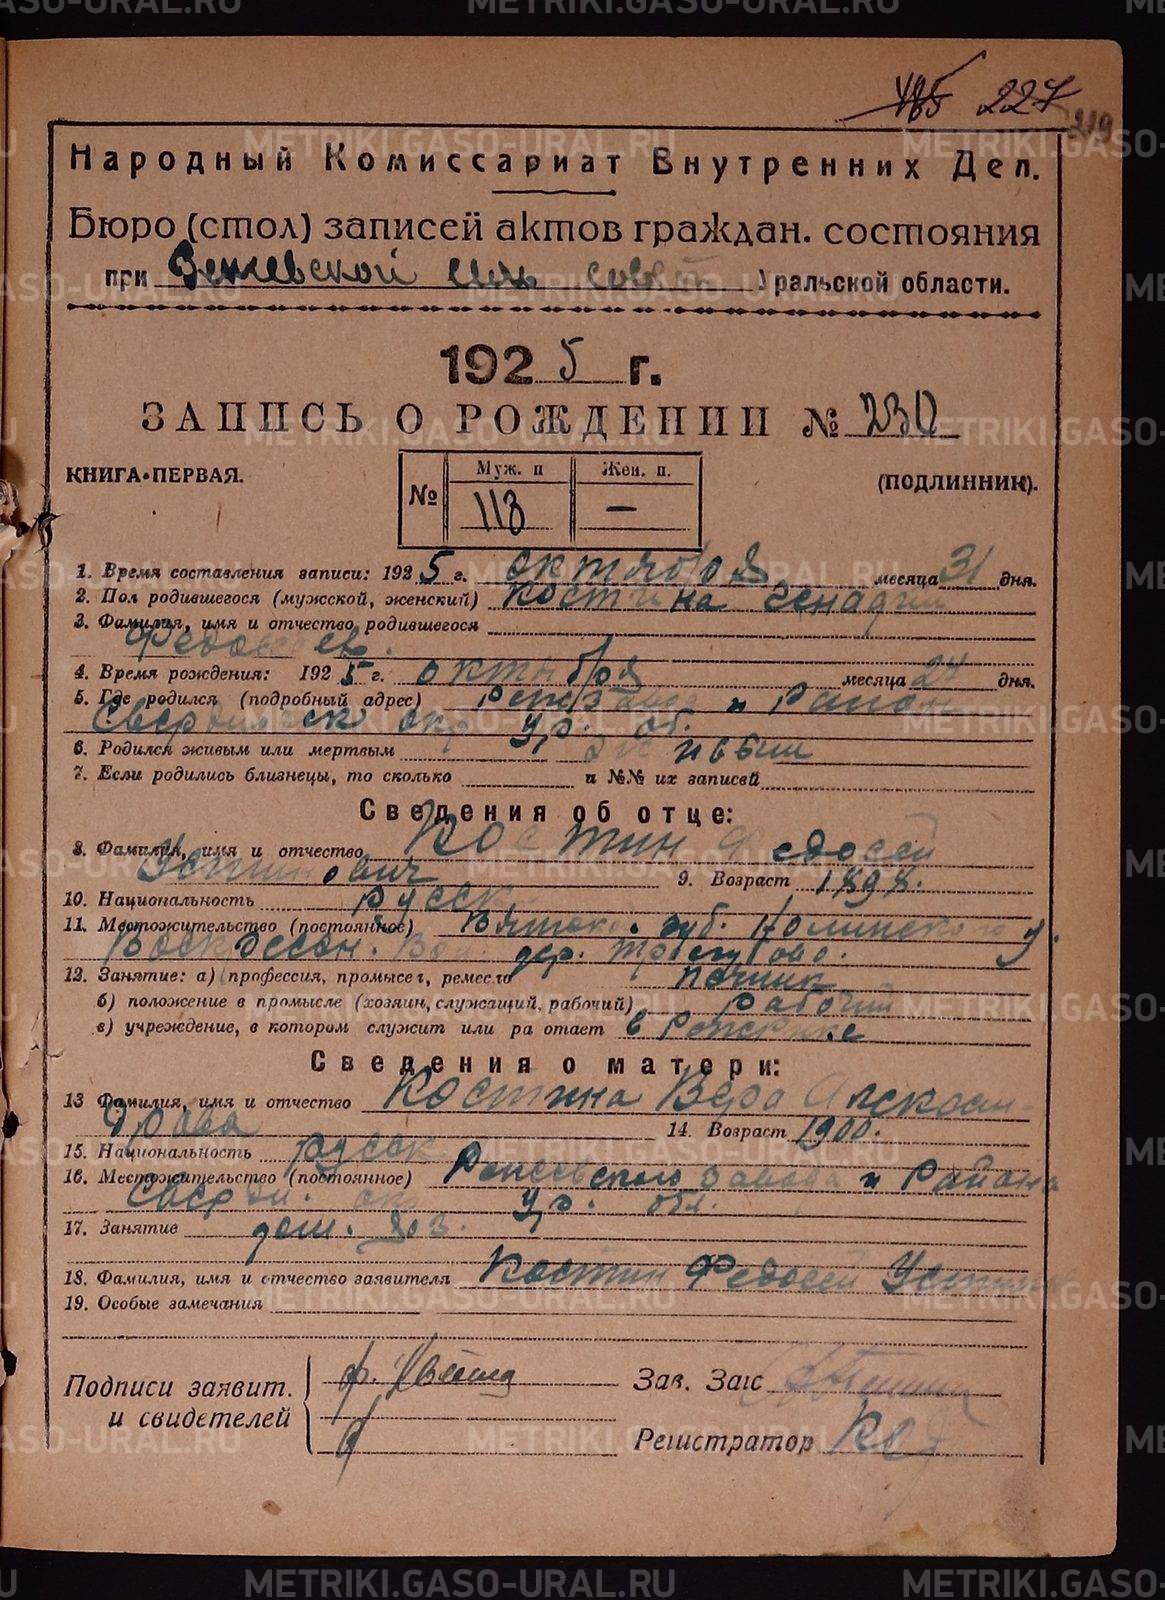 185 227
219
Народный Комиссариат Внутренних Дел.
Бюро (стол) записей актов граждан. состояния
при Режевской сель совет Уральской области.
1925 г.
ЗАПИСЬ О РОЖДЕНИИ № 230
КНИГА ПЕРВАЯ. (ПОДЛИННИК).
№ Муж. п Жен. п.
113 —
1. Время составления записи: 1925 г. октября месяца 31 дня.
2. Пол родившегося (мужской, женский) Костина Генадий
3. Фамилия, имя и отчество родившегося
Федосеев.
4. Время рождения: 1925 г. октября месяца 24 дня.
5. Где родился (подробный адрес) и Район
Свердловск окр Ур. об.
6. Родился живым или мертвым живым
7. Если родились близнецы, то сколько и №№ их записей
Сведения об отце:
8. Фамилия, имя и отчество Костин Федосей
Устинович 9. Возраст 1898.
10. Национальность русск
11. Местожительство (постоянное) Вятско. губ. Нолинского у.
Воскресен. Вол. дер.
12. Занятие: а) (профессия, промысел, ремесло
б) положение в промысле (хозяин, служащий, рабочий) рабочий
в) учреждение, в котором служит или ра отает в
Сведения о матери:
13 Фамилия, имя и отчество Костина Вера Алексан-
дрова 14. Возраст 1900.
15. Национальность русск
16. Местожительство (постоянное) Режевского завода и Района
Свердл. ок Ур. обл.
17. Занятие дом. хоз.
18. Фамилия, имя и отчество заявителя Костин Федосей Устинов
19. Особые замечания
Подписи заявит. и свидетелей
Зав. Загс
Регистратор
METRIKI.GASO-URAL.RU